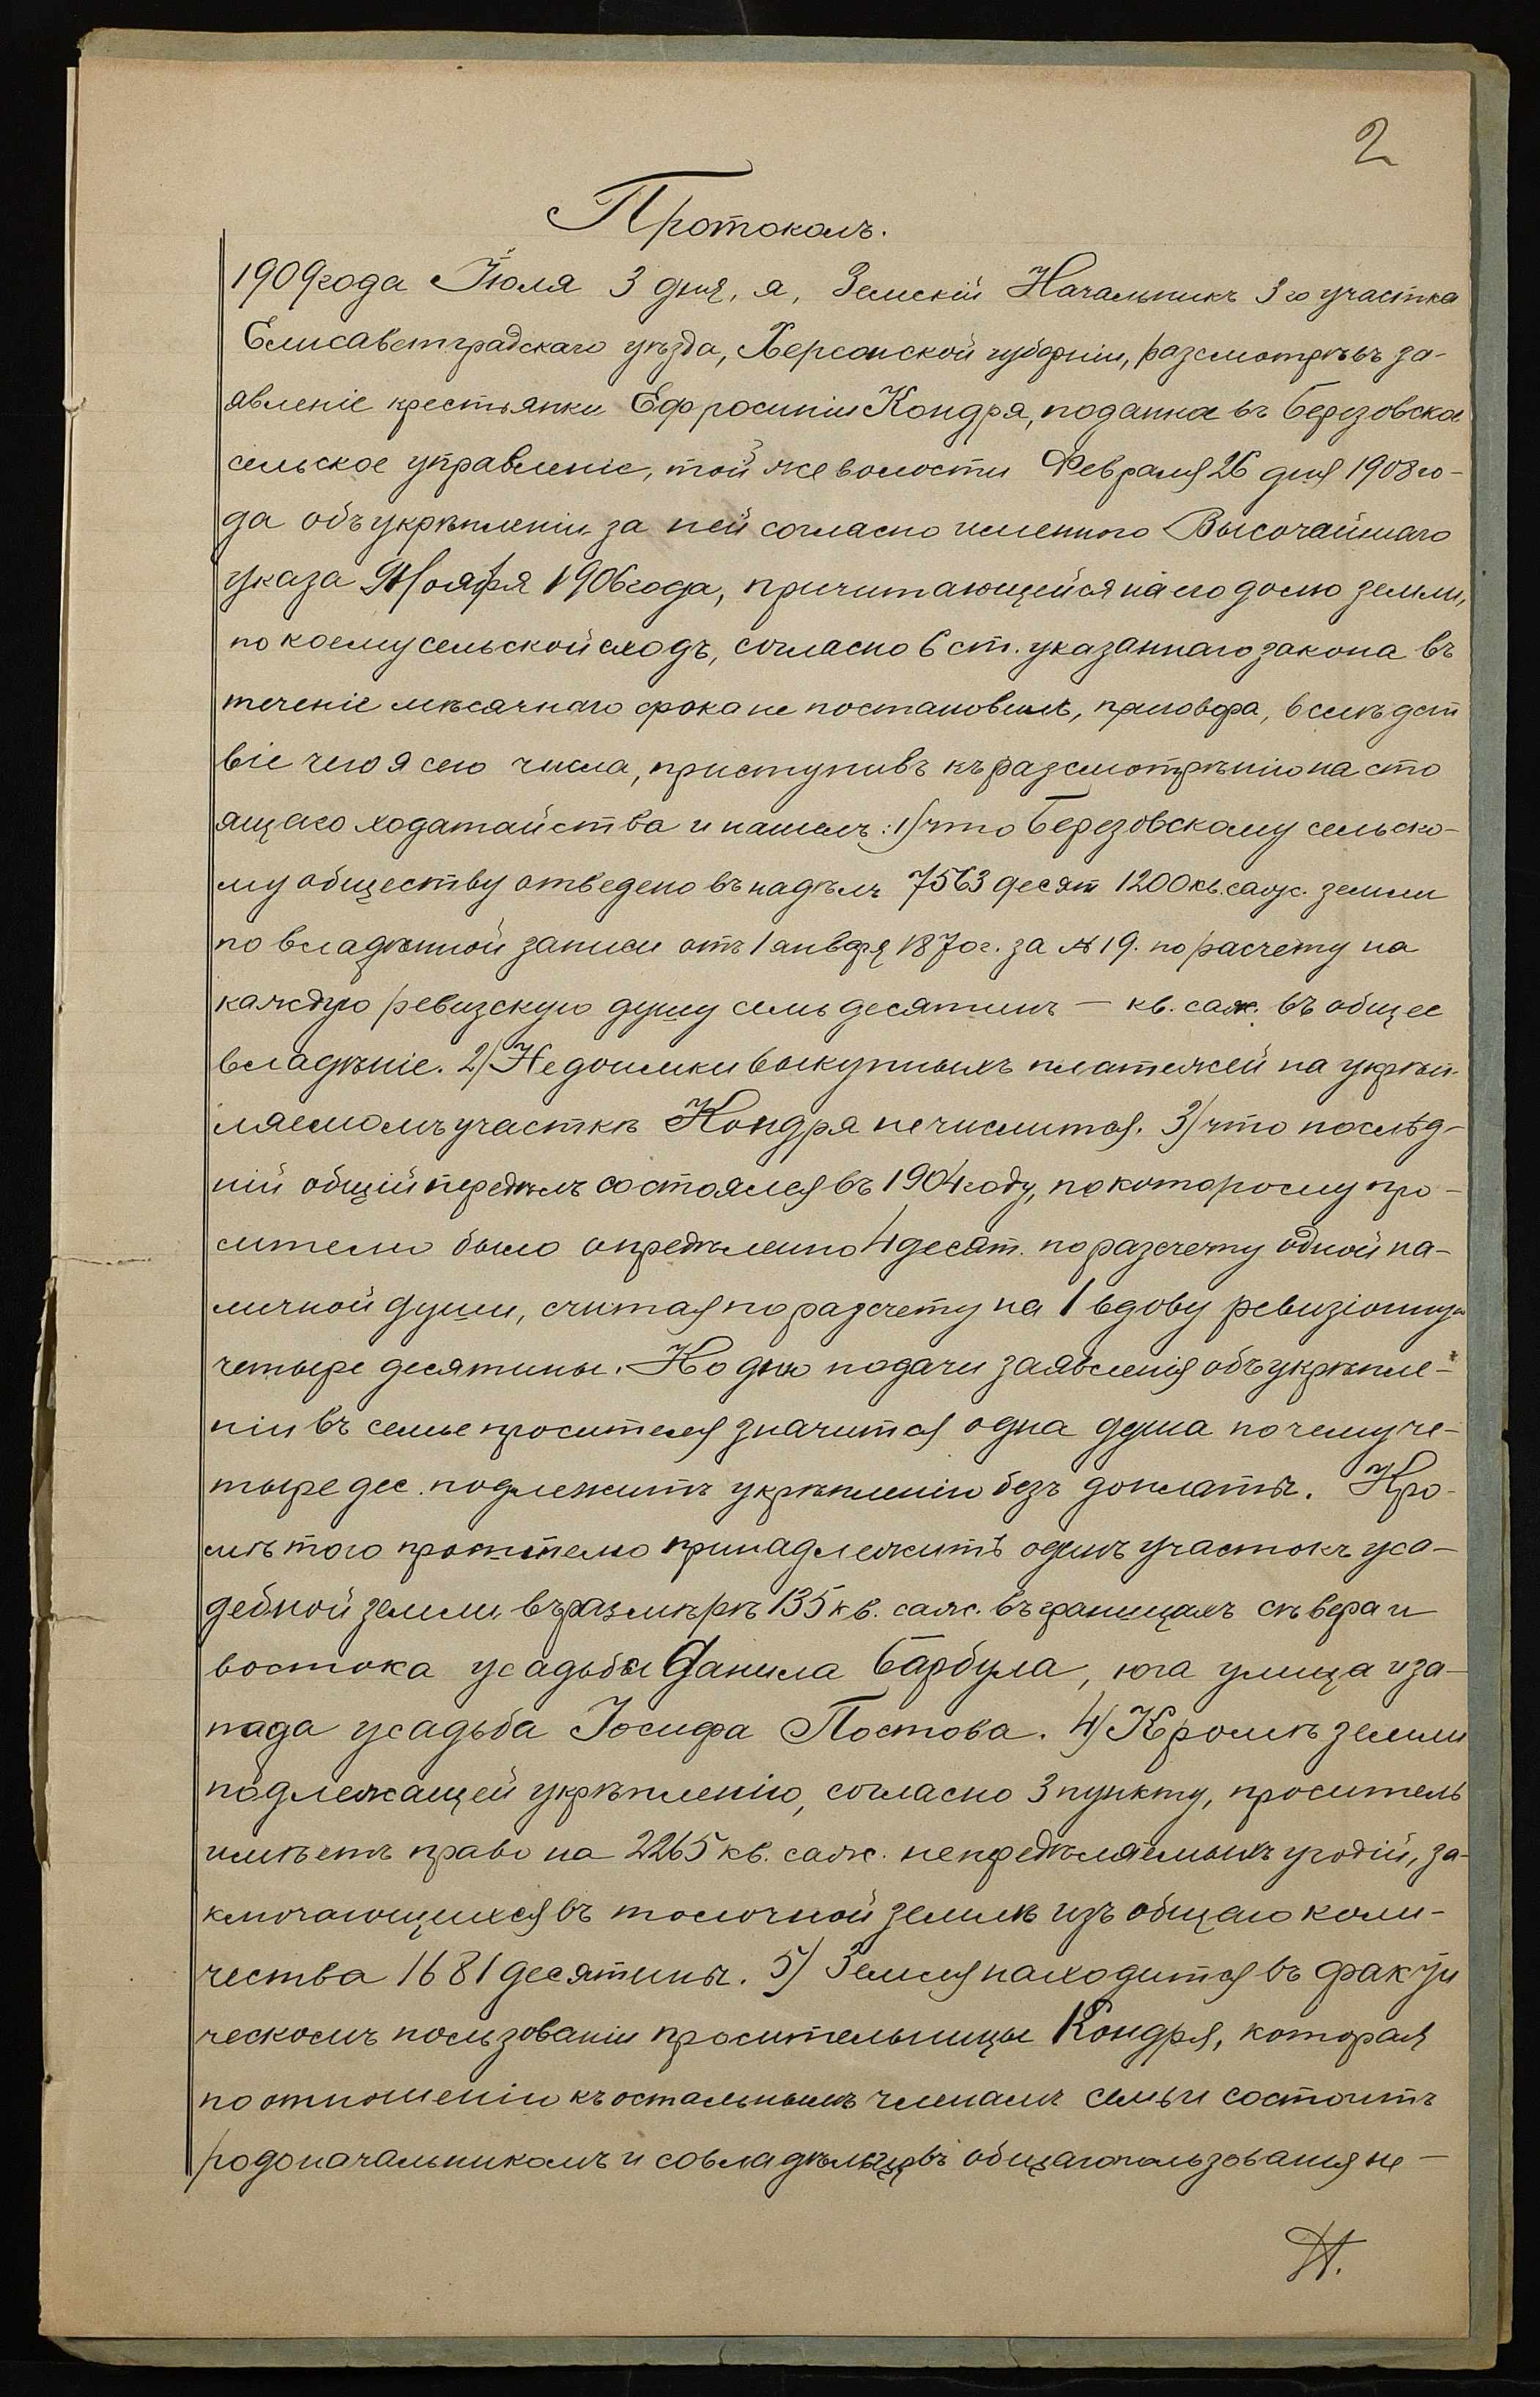 2
Протоколъ.
1909 года Іюля 3 дня, я, Земскій Начальникъ 3го участка
Елисаветградскаго уѣзда, Херсонской губерніи, разсмотрѣвъ за-
явленіе крестьянки Ефросиніи Кондря, поданное въ Березовское
сельское управленіе, той же волости Февраля 26 дня 1908 го-
да объ укрѣпленіи за ней согласно именного Высочайшаго
указа 9 Ноября 1906 года, причитающейся на его долю земли,
по коему сельской сходъ, согласно 6 ст. указаннаго закона въ
теченіе мѣсячнаго срока не постановилъ, приговора, вслѣдст
віе чего я сего числа, приступивъ къ разсмотрѣнію насто
ящаго ходатайства и нашелъ: 1) что Березовскому сельско-
му обществу отведено въ надѣлъ 7563 десят 1200 кв. саж. земли
по владѣнной записи отъ 1 января 1870 г. за № 19. по расчету на
каждую ревизскую душу семь десятинъ — кв. саж. въ общее
владѣніе. 2) Недоимки выкупныхъ платежей на укрѣп-
ляемомъ участкѣ Кондря не числится. 3) что послѣд-
ній общій передѣлъ состоялся въ 1904 году, по которому про-
сителю было опредѣлено 4 десят. по разсчету одной на-
личной души, считая по разчету на 1 вдову ревизіонную
четыре десятины. Ко дню подачи заявленія объ укрѣпле-
ніи въ семье просителя значится одна душа почему че-
тыре дес. подлежитъ укрѣпленію безъ доплаты. Кро-
мѣ того просителю принадлежитъ одинъ участокъ уса-
дебной земли въ размѣрѣ 135 кв. саж. въ границахъ сѣвера и
востока усадьба Данила Барбула, юга улица и за-
пада усадьба Іосифа Постова. 4) Кромѣ земли
подлежащей укрѣпленію, согласно 3 пункту, проситель
имѣетъ право на 2265 кв. саж. непредѣляемыхъ угодій, за-
ключающихся въ толочной землѣ изъ общаго коли-
чества 1681 десятины. 5) Земля находится въ факти
ческомъ пользованіи просительницы Кондря, которая
по отношенію къ остальнымъ членамъ семьи состоитъ
родоначальникомъ и совладѣльцевъ общаго пользованія не-